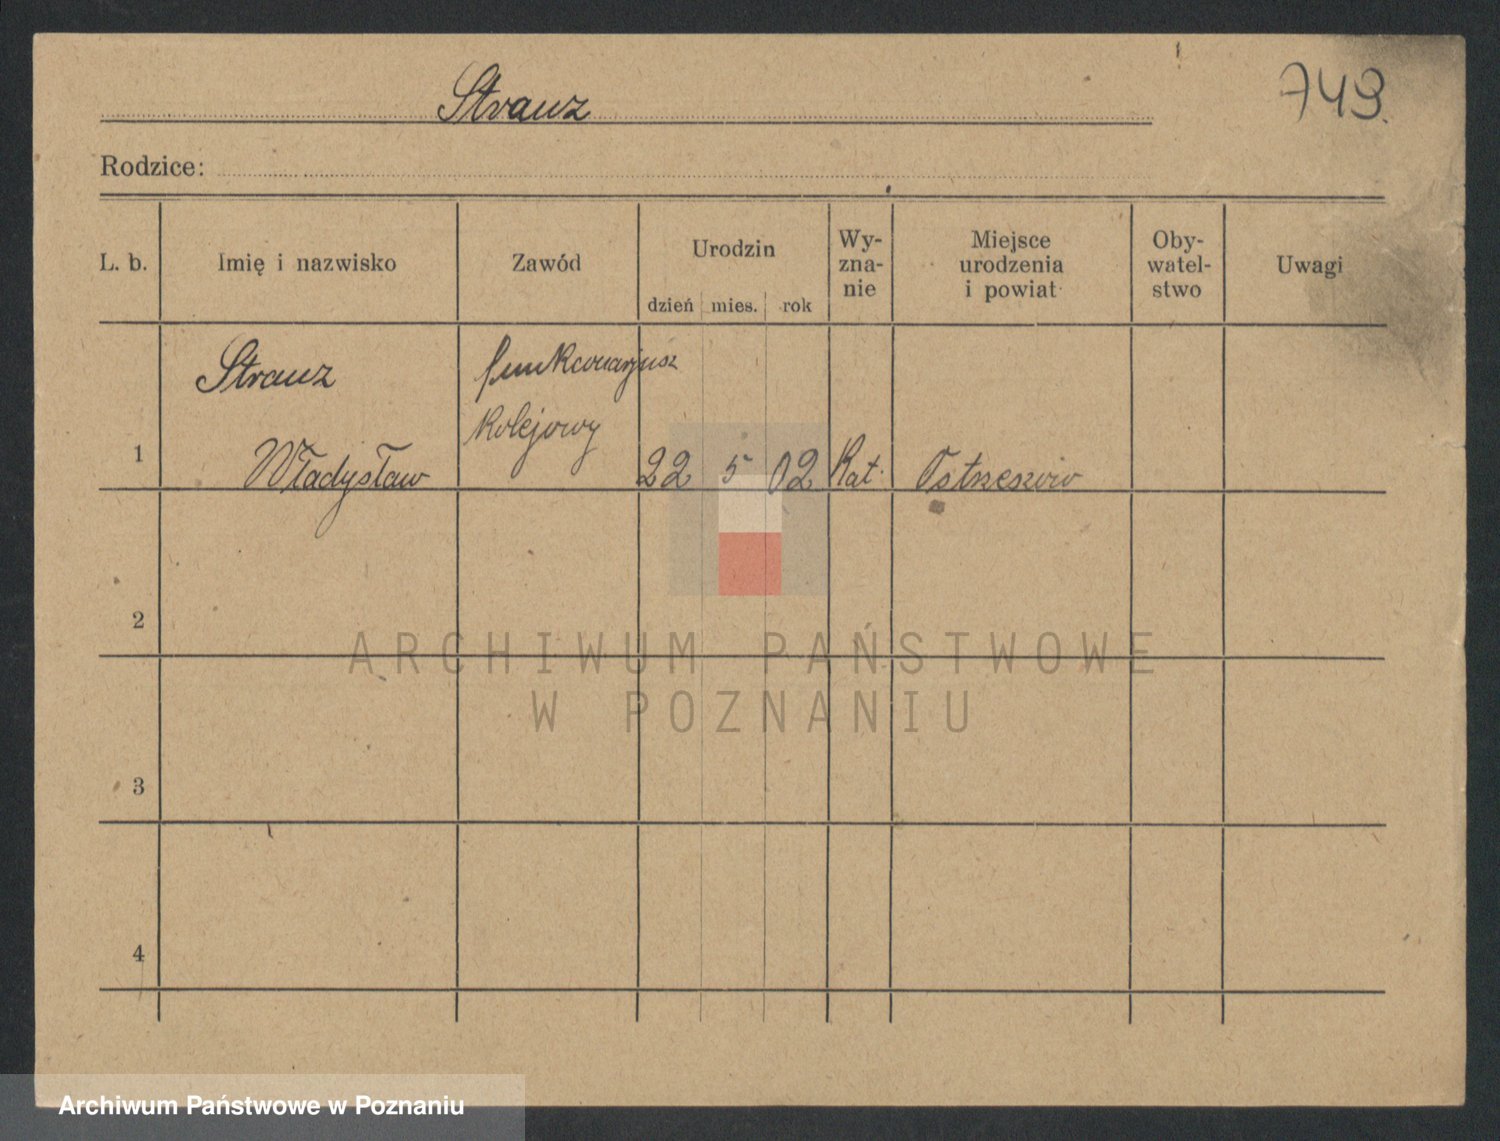 Strauz
749.
Rodzice:
L. b. Imię i nazwisko Zawód Urodzin dzień mies. rok Wy-
zna-
nie Miejsce
urodzenia
i powiat Oby-
watel-
stwo Uwagi
Strauz funkconarjusz
kolejowy
1 Władysław 22 5 02 Kat. Ostrzeszów
2
3
4
ARCHIWUM PAŃSTWOWE
W POZNANIU
Archiwum Państwowe w Poznaniu